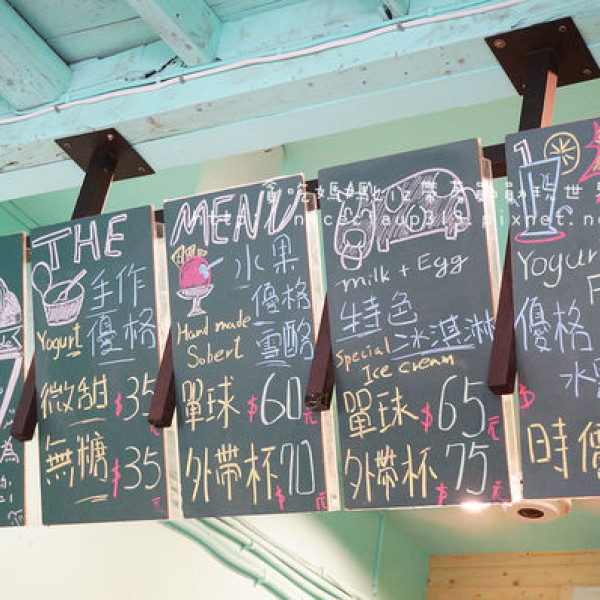 THE
手作
Yogurt
優格
微甜 $35
無糖 $35
元
MENU
水果
優格
Hand made
Sobert
雪酪
單球 $60
元
外帶杯70
$元
milk + Egg
特色
冰淇淋
Special
Ice cream
單球 $65
元
外帶杯 75
$元
1
Yogur
優格
水
$
時價
為